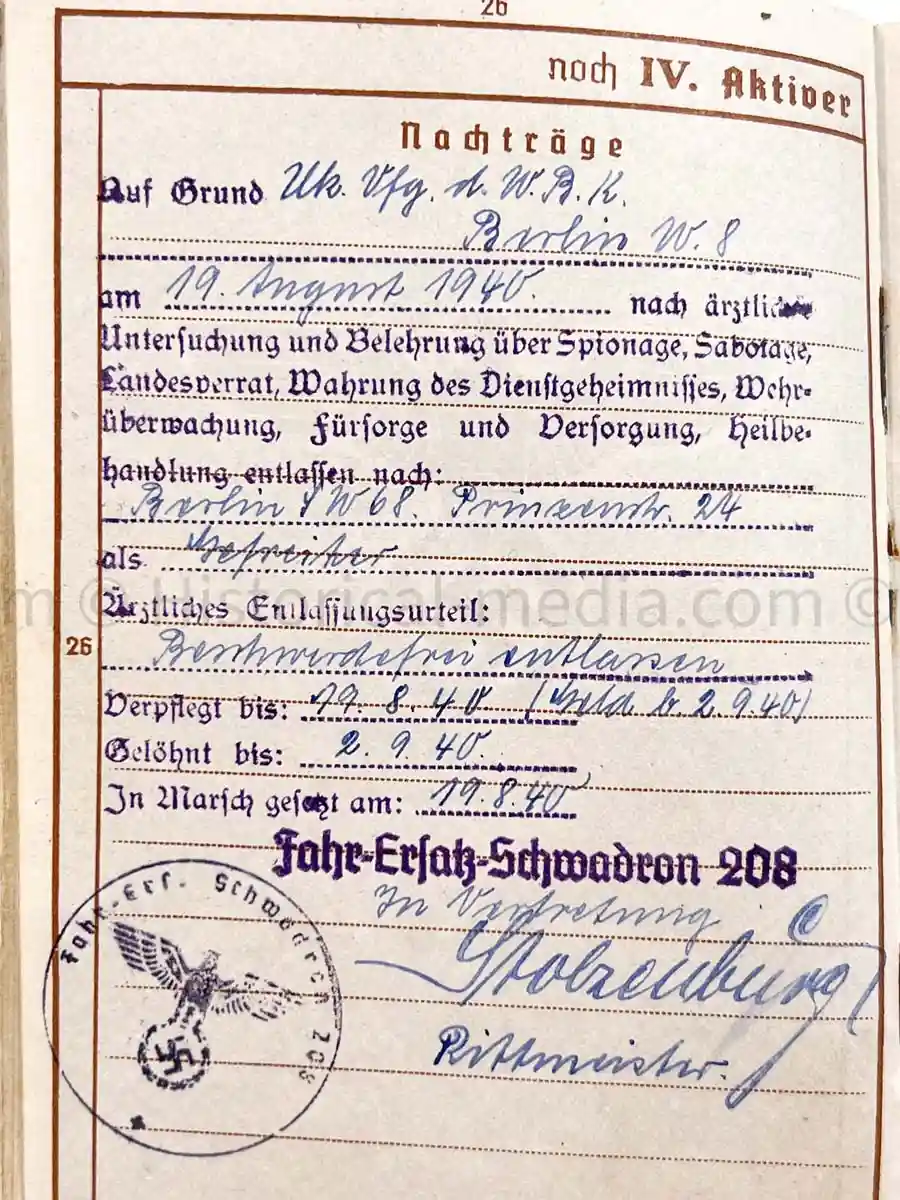 26
noch IV. Aktiver
Nachträge
Auf Grund Uk. Vfg. d. W. B. K.
Berlin W. 8
am 19. August 1940. nach ärztlicher
Untersuchung und Belehrung über Spionage, Sabotage,
Landesverrat, Wahrung des Dienstgeheimnisses, Wehr-
überwachung, Fürsorge und Versorgung, Heilbe-
handlung entlassen nach:
Berlin SW 68. Prinzenstr. 24
als Gefreiter
Ärztliches Entlassungsurteil:
26
Beschwerdefrei entlassen
Verpflegt bis: 19. 8. 40 (Geld b. 2. 9. 40)
Gelöhnt bis: 2. 9. 40.
In Marsch gesetzt am: 19. 8. 40
Fahr-Ersatz-Schwadron 208
In Vertretung
Stolzenburg
Rittmeister.
Fahr-Ers. Schwadron 208
© Historical-media.com ©